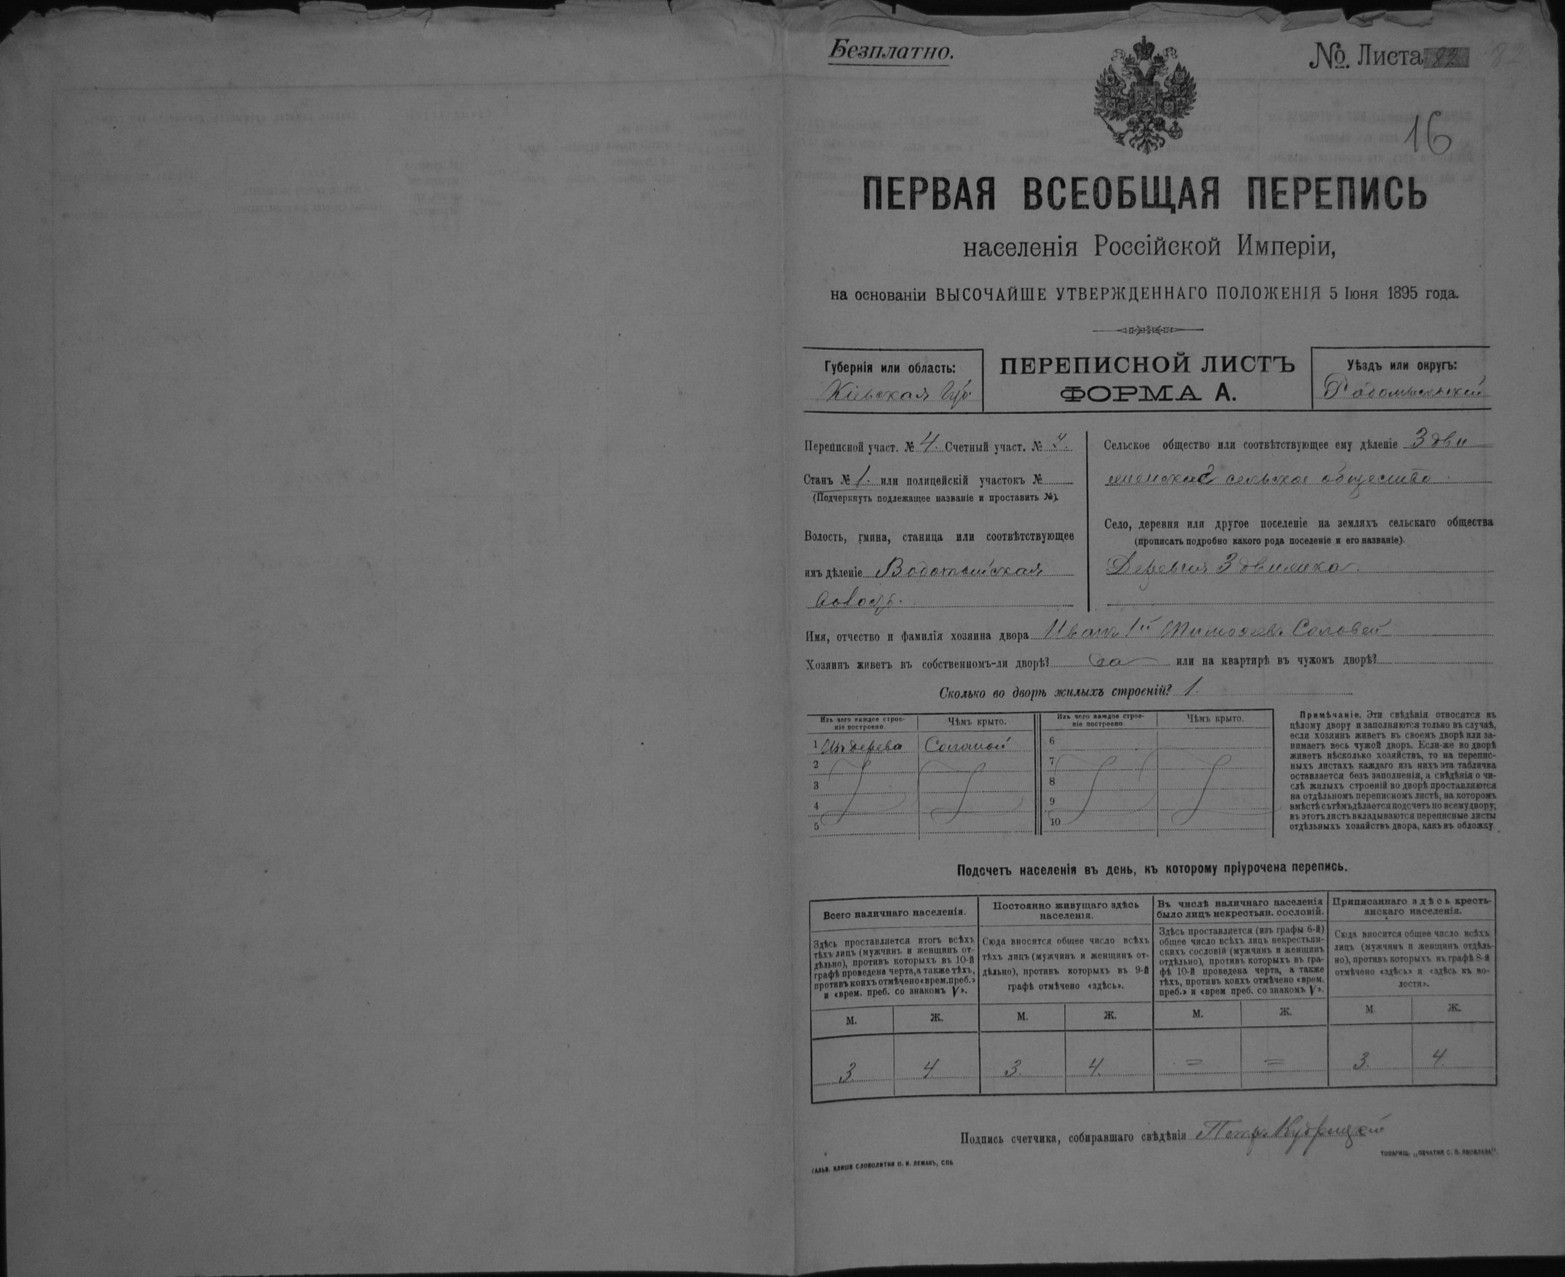 Безплатно.
№. Листа 82 82
16
ПЕРВАЯ ВСЕОБЩАЯ ПЕРЕПИСЬ
населенія Россійской Имперіи,
на основаніи ВЫСОЧАЙШЕ УТВЕРЖДЕННАГО ПОЛОЖЕНІЯ 5 Іюня 1895 года.
Губернія или область:
Кіевская Губ
ПЕРЕПИСНОЙ ЛИСТЪ
ФОРМА А.
Уѣздъ или округъ:
Радомысльскій
Переписной участ. № 4. Счетный участ. № 4.
Станъ № 1. или полицейскій участокъ №
(Подчеркнуть подлежащее названіе и проставить №).
Волость, гмина, станица или соотвѣтствующее
имъ дѣленіе Водотыйская
волость.
Сельское общество или соотвѣтствующее ему дѣленіе Здви
сельское общество.
Село, деревня или другое поселеніе на земляхъ сельскаго общества
(прописать подробно какого рода поселеніе и его названіе).
Деревня Здвижка.
Имя, отчество и фамилія хозяина двора Иванъ 1й Тимофеевъ Соловей
Хозяинъ живетъ въ собственномъ-ли дворѣ? да или на квартирѣ въ чужомъ дворѣ?
Сколько во дворѣ жилыхъ строеній? 1.
Изъ чего каждое строе-
ніе построено.
Чѣмъ крыто.
Изъ чего каждое строе-
ніе построено.
Чѣмъ крыто.
1 Изъ дерева Соломой
2
3
4
5
6
7
8
9
10
Примѣчаніе. Эти свѣдѣнія относятся къ
цѣлому двору и заполняются только въ случаѣ,
если хозяинъ живетъ въ своемъ дворѣ или за-
нимаетъ весь чужой дворъ. Если-же во дворѣ
живетъ нѣсколько хозяйствъ, то на перепис-
ныхъ листахъ каждаго изъ нихъ эта табличка
оставляется безъ заполненія, а свѣдѣнія о чи-
слѣ жилыхъ строеній во дворѣ проставляются
на отдѣльномъ переписномъ листѣ, на которомъ
вмѣстѣ съ тѣмъ дѣлается подсчетъ по всему двору;
въ этотъ листъ вкладываются переписные листы
отдѣльныхъ хозяйствъ двора, какъ въ обложку.
Подсчетъ населенія въ день, къ которому пріурочена перепись.
Всего наличнаго населенія.
Здѣсь проставляется итогъ всѣхъ
тѣхъ лицъ (мужчинъ и женщинъ от-
дѣльно), противъ которыхъ въ 10-й
графѣ проведена черта, а также тѣхъ,
противъ коихъ отмѣчено «врем. преб.»
и «врем. преб. со знакомъ V».
Постоянно живущаго здѣсь
населенія.
Сюда вносится общее число всѣхъ
тѣхъ лицъ (мужчинъ и женщинъ от-
дѣльно), противъ которыхъ въ 9-й
графѣ отмѣчено «здѣсь».
Въ числѣ наличнаго населенія
было лицъ некрестьян. сословій.
Здѣсь проставляется (изъ графы 6-й)
общее число всѣхъ лицъ некрестьян-
скихъ сословій (мужчинъ и женщинъ
отдѣльно), противъ которыхъ въ гра-
фѣ 10-й проведена черта, а также
тѣхъ, противъ коихъ отмѣчено «врем.
преб.» и «врем преб. со знакомъ V».
Приписаннаго здѣсь кресть-
янскаго населенія.
Сюда вносится общее число всѣхъ
лицъ (мужчинъ и женщинъ отдѣль-
но), противъ которыхъ въ графѣ 8-й
отмѣчено «здѣсь» и «здѣсь въ во-
лости».
М. Ж. М. Ж. М. Ж. М. Ж.
3 4 3. 4. = = 3 4
Подпись счетчика, собиравшаго свѣдѣнія Петръ Кудрицкій
ГАЛЬВ. КЛИШЕ СЛОВОЛИТНИ О. И. ЛЕМАНЪ, СПБ
ТОВАРИЩ. „ПЕЧАТНЯ С. П. ЯКОВЛЕВА".